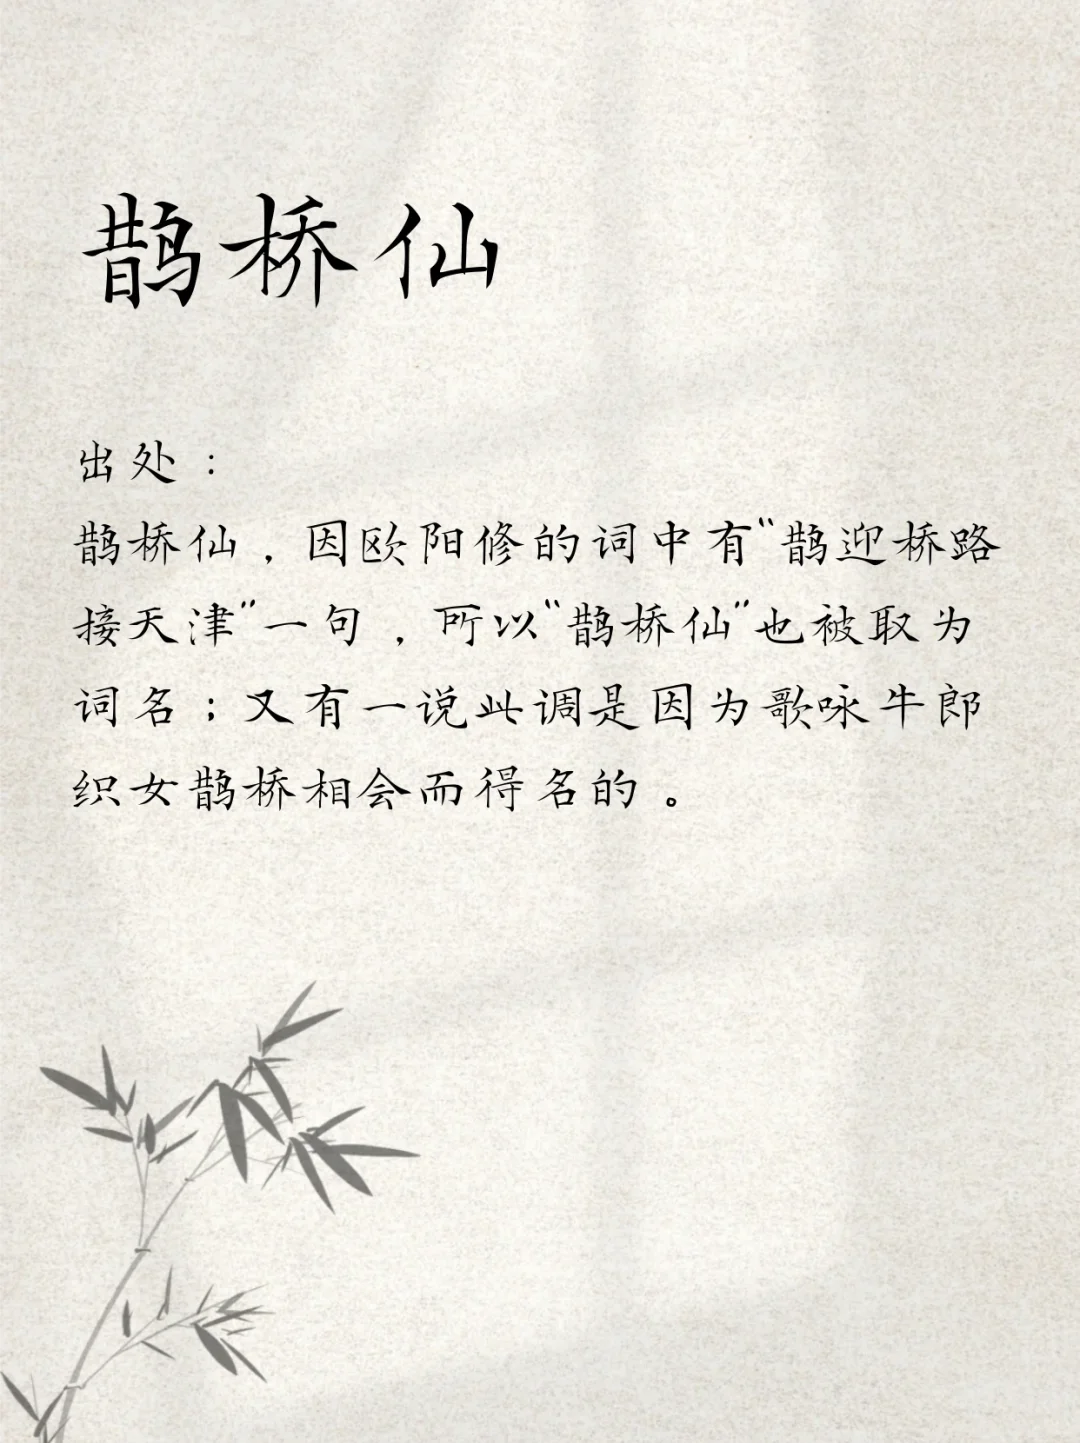 鹊桥仙
出处：
鹊桥仙，因欧阳修的词中有“鹊迎桥路
接天津”一句，所以“鹊桥仙”也被取为
词名；又有一说此调是因为歌咏牛郎
织女鹊桥相会而得名的。